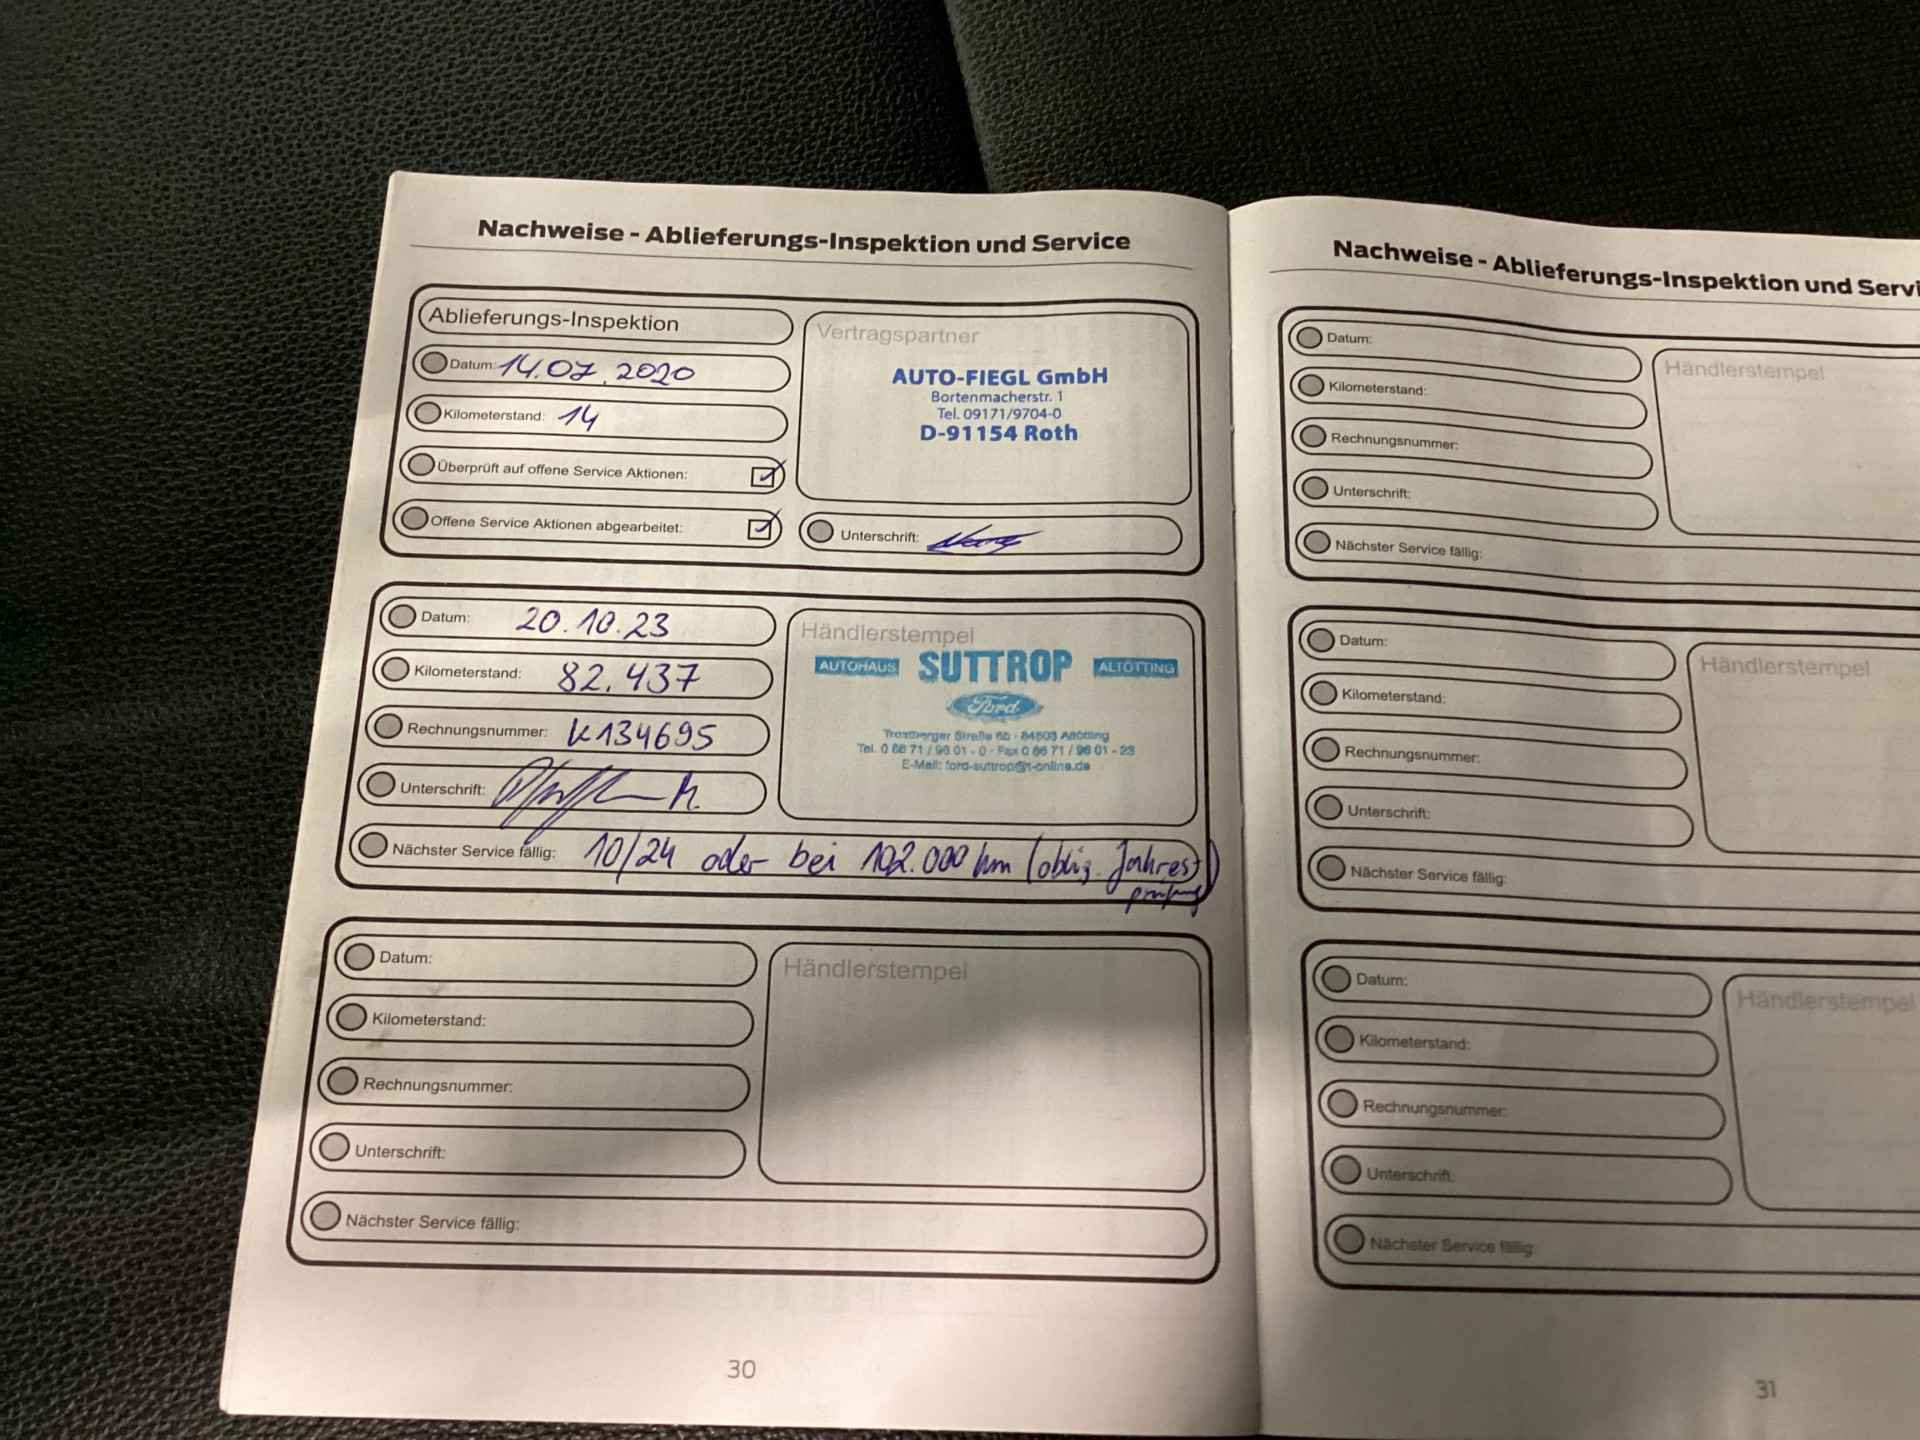 Nachweise - Ablieferungs-Inspektion und Service
Ablieferungs-Inspektion
Datum: 14.07.2020
Kilometerstand: 14
Überprüft auf offene Service Aktionen:
Offene Service Aktionen abgearbeitet:
Vertragspartner
AUTO-FIEGL GmbH
Bortenmacherstr. 1
Tel. 09171/9704-0
D-91154 Roth
Unterschrift:
Datum: 20.10.23
Kilometerstand: 82.437
Rechnungsnummer: K134695
Unterschrift:
Händlerstempel
AUTOHAUS SUTTROP ALTÖTTING
Ford
Trostberger Straße - 84503 Altötting
Tel. 0 86 71 / 96 01 - 0 - Fax 0 86 71 / 96 01 - 23
E-Mail: ford-suttrop@t-online.de
Nächster Service fällig: 10/24 oder bei 102.000 km (oblig. Jahres-
prüfung)
Datum:
Kilometerstand:
Rechnungsnummer:
Unterschrift:
Händlerstempel
Nächster Service fällig:
30
Nachweise - Ablieferungs-Inspektion und Servi
Datum:
Kilometerstand:
Rechnungsnummer:
Unterschrift:
Händlerstempel
Nächster Service fällig:
Datum:
Kilometerstand:
Rechnungsnummer:
Unterschrift:
Händlerstempel
Nächster Service fällig:
Datum:
Kilometerstand:
Rechnungsnummer:
Unterschrift:
Händlerstempel
Nächster Service fällig:
31